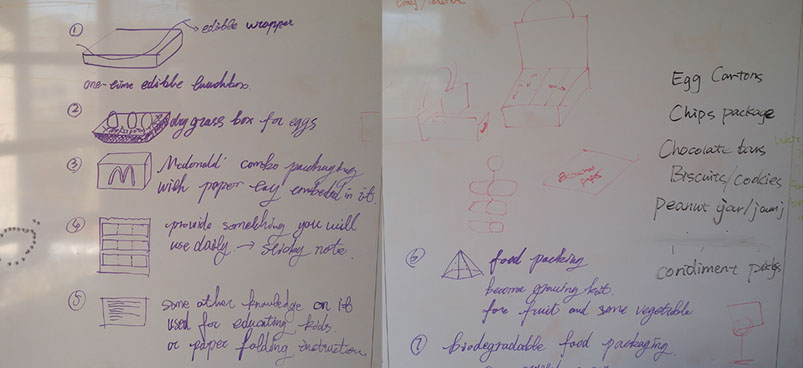 ①
edible wrapper
one-time edible lunchbox
②
dry grass box for eggs
③
Mcdonald' combo packaging
with paper embeded in it.
④
provide something you will
use daily → sticky note
⑤
some other knowledge on it
used for educating kids.
or paper folding instruction
Egg Cartons
Chips package
Chocolate bars
Biscuits/cookies
Peanut jar/jam)
condiment
⑥
food packing
become growing
for fruit and some vegetable
⑦
biodegradable food packaging.